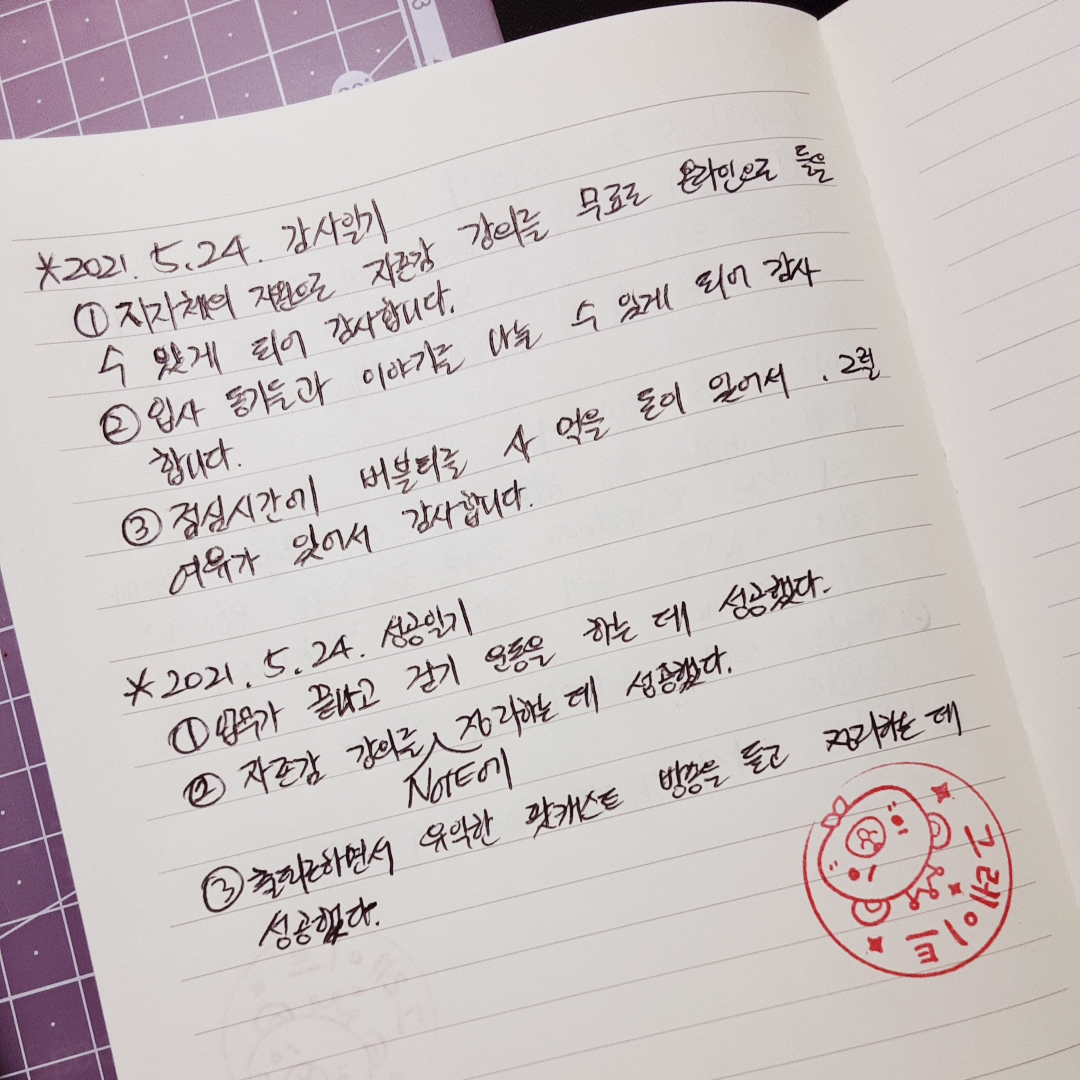 *2021. 5.24. 감사일기
① 지자체의 지원으로 자존감 강의를 무료로 온라인으로 들을
수 있게 되어 감사합니다.
② 입사 동기들과 이야기를 나눌 수 있게 되어 감사
합니다.
③ 점심시간에 버블티를 사 먹을 돈이 있어서, 그럴
여유가 있어서 감사합니다.
*2021. 5.24. 성공일기
① 업무가 끝나고 걷기 운동을 하는 데 성공했다.
② 자존감 강의를 정리하는 데 성공했다.
NOTE에
③ 출퇴근하면서 유익한 팟캐스트 방송을 듣고 정리하는 데
성공했다.
그레이트